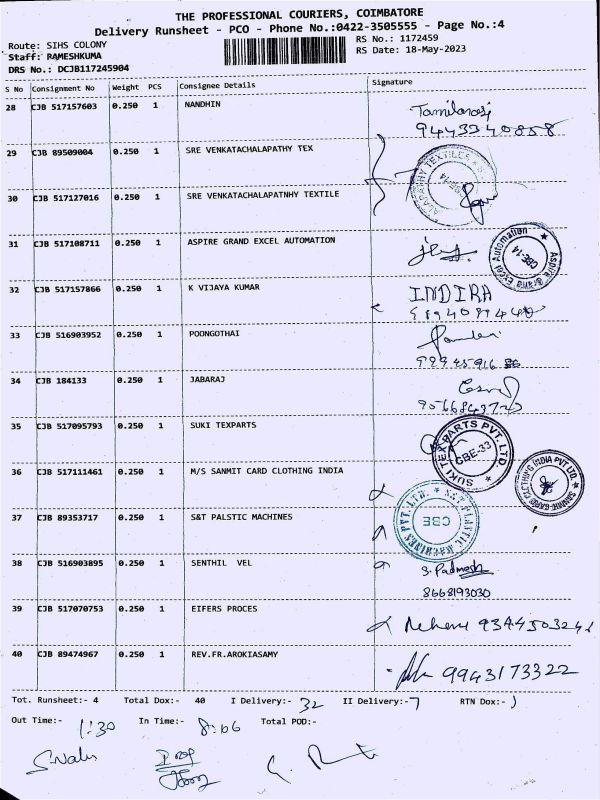 THE PROFESSIONAL COURIERS, COIMBATORE
Delivery Runsheet - PCO - Phone No.:0422-3505555 - Page No.:4
Route: SIHS COLONY RS No.: 1172459
Staff: RAMESHKUMA RS Date: 18-May-2023
DRS No.: DCJB117245904
S No Consignment No Weight PCS Consignee Details Signature
28 CJB 517157603 0.250 1 NANDHIN
9443340858
29 CJB 89509004 0.250 1 SRE VENKATACHALAPATHY TEX
30 CJB 517127016 0.250 1 SRE VENKATACHALAPATNHY TEXTILE
31 CJB 517108711 0.250 1 ASPIRE GRAND EXCEL AUTOMATION
Aspire Grand Excel Automation CBE-14
32 CJB 517157866 0.250 1 K VIJAYA KUMAR INDIRA
33 CJB 516903952 0.250 1 POONGOTHAI
34 CJB 184133 0.250 1 JABARAJ
35 CJB 517095793 0.250 1 SUKI TEXPARTS
SUKI TEX PARTS PVT. LTD. CBE-33
36 CJB 517111461 0.250 1 M/S SANMIT CARD CLOTHING INDIA
37 CJB 89353717 0.250 1 S&T PALSTIC MACHINES
S&T PLASTIC MACHINES PVT. LTD. CBE
38 CJB 516903895 0.250 1 SENTHIL VEL S. Padmesh
8668193030
39 CJB 517070753 0.250 1 EIFERS PROCES
40 CJB 89474967 0.250 1 REV.FR.AROKIASAMY 9943173322
Tot. Runsheet:- 4 Total Dox:- 40 I Delivery:- 32 II Delivery:- 7 RTN Dox:- 1
Out Time:- 1:30 In Time:- 8:06 Total POD:-